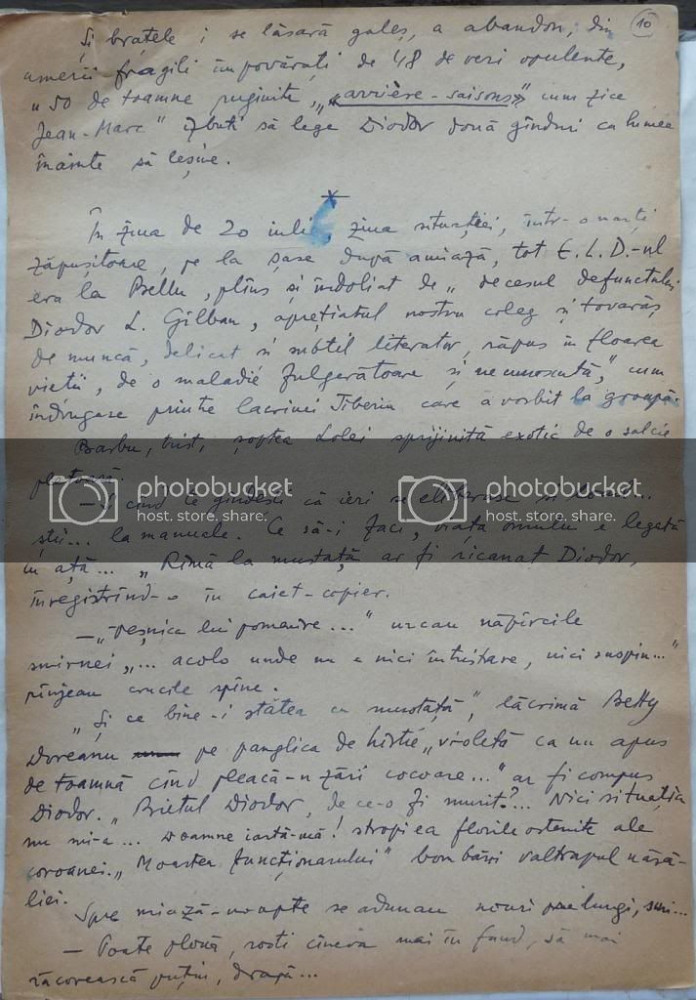 10
Și brațele i se lăsară galeș, a abandon, din
umerii fragili împovărați de 48 de veri opulente,
„50 de toamne ruginite, „arrière-saisons” cum zice
Jean-Marc” izbuti să lege Diodor două gînduri cu lumea
înainte să leșine.
*
În ziua de 20 iulie, ziua situației, într-o
zăpușitoare, pe la șase după amiază, tot E.L.D.-ul
era la Bellu, plîns și îndoliat de „decesul defunctului
Diodor L. Gilban, aprețiatul nostru coleg și tovarăș
de muncă, delicat și subtil literator, răpus în floarea
vieții, de o maladie fulgerătoare și necunoscută,” cum
îndrugase printre lacrimi Tiberiu care a vorbit la groapă.
Barbu, trist, șoptea Lolei sprijinită exotic de o salcie
pletoasă.
— Și cînd te gîndești că ieri se eliberase
știi... la manuele. Ce să-i faci, viața omului e legată
cu ață... „Rimă la mustață ar fi ricanat Diodor,
înregistrînd-o în caiet-copier.
— „Veșnica lui pomenire...” urcau
smirnei „... acolo unde nu e nici întristare, nici suspin...”
crucile spîne.
„Și ce bine-i stătea cu mustață”, lăcrimă Betty
Doreanu pe panglica de hîrtie „violetă ca un apus
de toamnă cînd pleacă-n zări cocoare...” ar fi compus
Diodor. „Bietul Diodor, de ce-o fi murit?... Nici situația
nu mi-a... Doamne iartă-mă! stropi ea florile ostenite ale
coroanei. „Moartea funcționarului” bombăni valtrapul năsă-
liei.
Spre miază-noapte se adunau nouri prelungi, suri...
— Poate plouă, rosti cineva mai în fund, să mai
răcorească puțin, dragă...
photobucket
host. store. share.
photobucket
host. store. share.